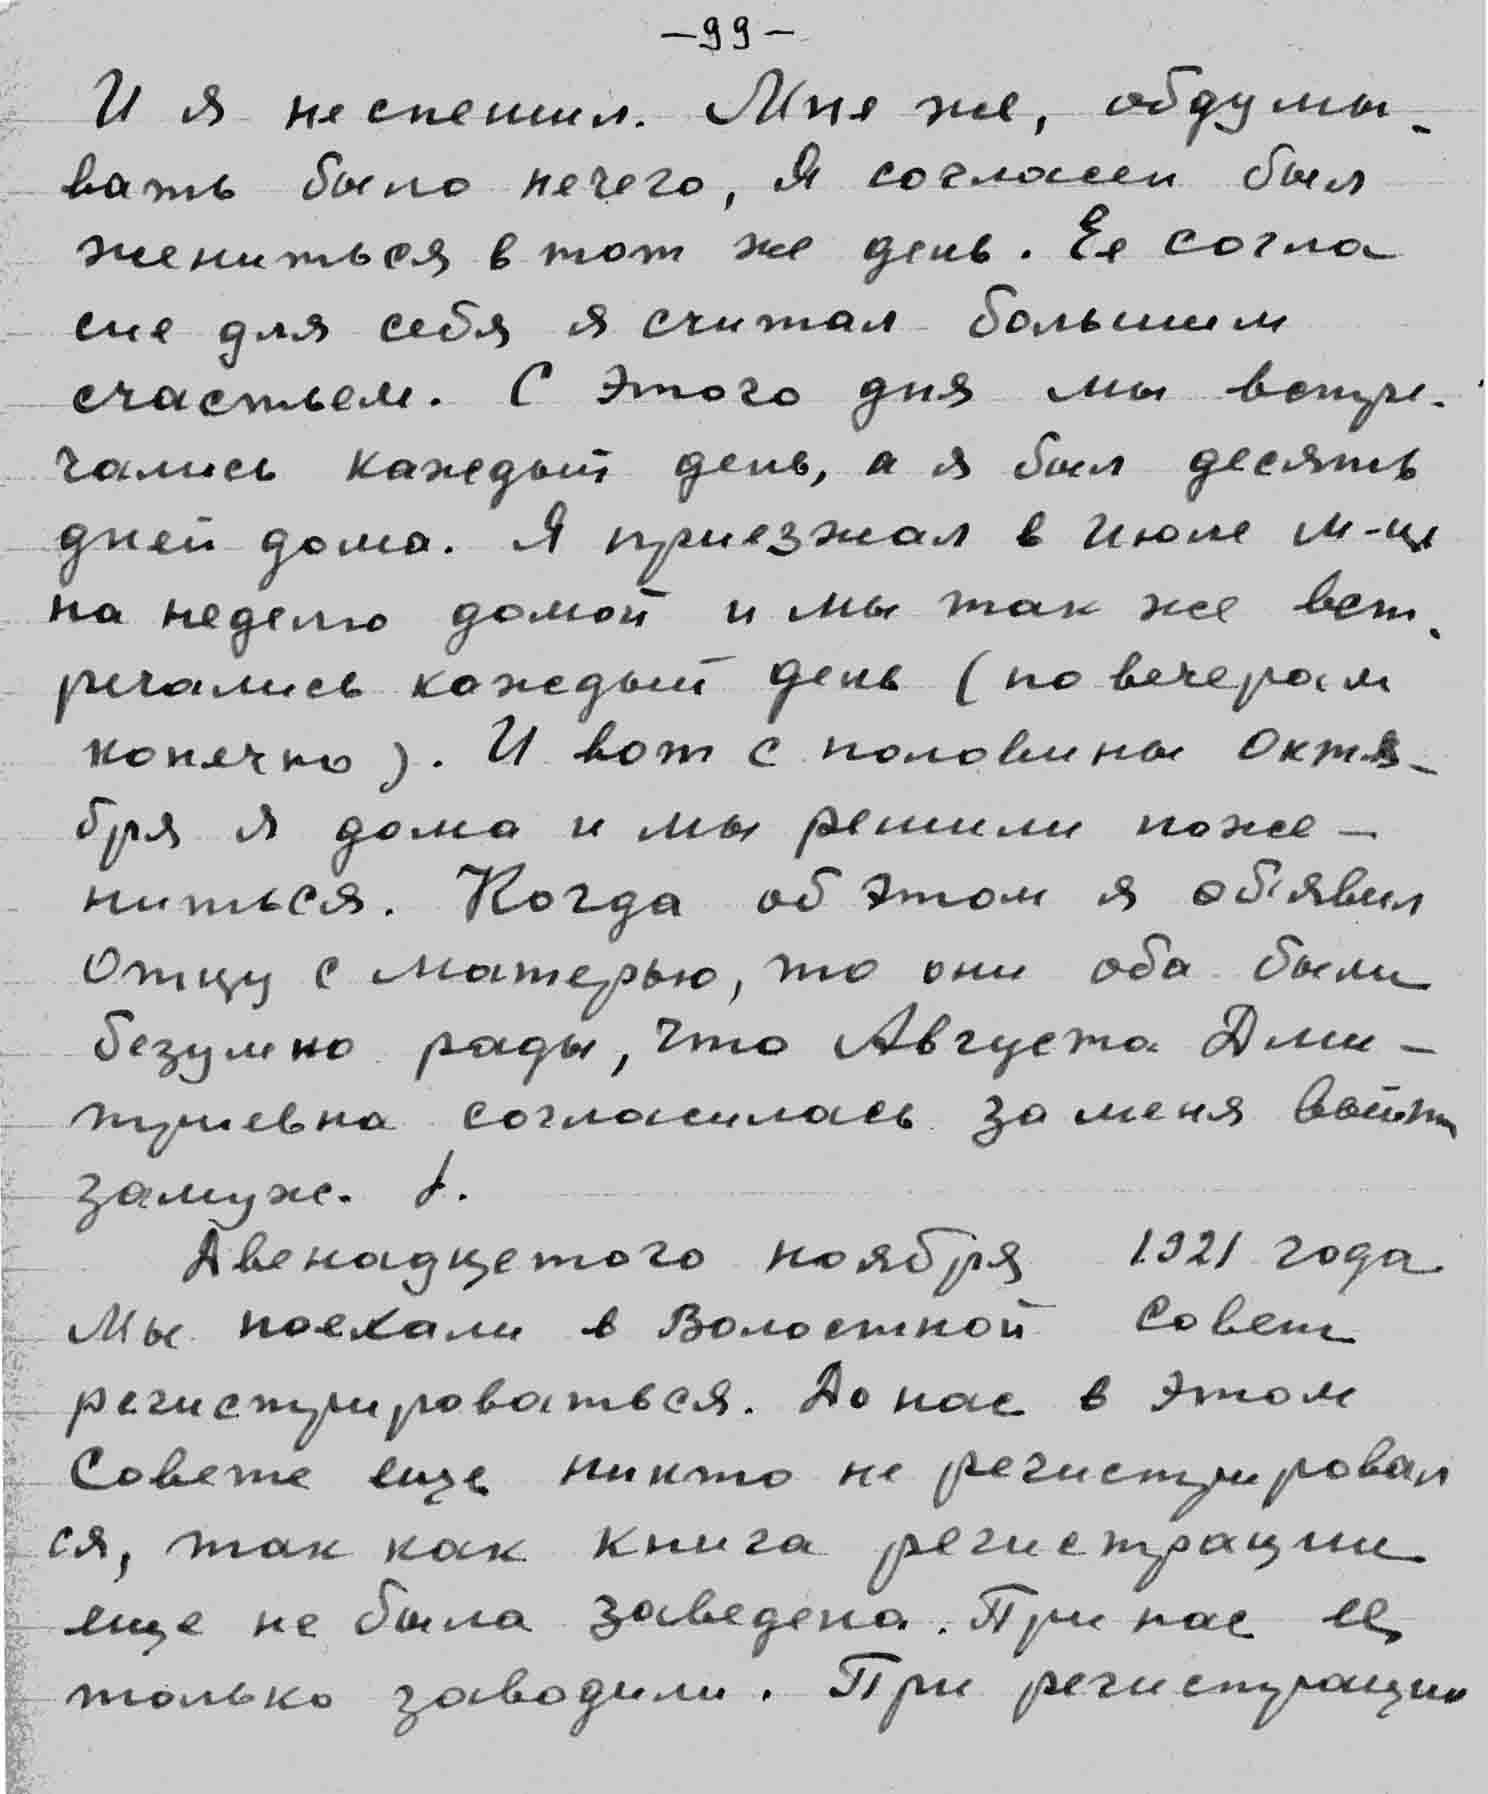 -99-
И я не спешил. Мне же, обдумы-
вать было нечего, я согласен был
жениться в тот же день. Ее согла
сие для себя я считал большим
счастьем. С этого дня мы встре-
чались каждый день, а я был десять
дней дома. Я приезжал в июле м-це
на неделю домой и мы так же вст-
речались каждый день (по вечерам
конечно). И вот с половины октя-
бря я дома и мы решили поже-
ниться. Когда об этом я об'явил
отцу с матерью, то они оба были
безумно рады, что Августа Дми-
триевна согласилась за меня выйти
замуж.
Двенадцетого ноября 1921 года
мы поехали в Волостной Совет
регистрироваться. До нас в этом
Совете еще никто не регистрировал
ся, так как книга регистрации
еще не была заведена. При нас ее
только заводили. При регистрации